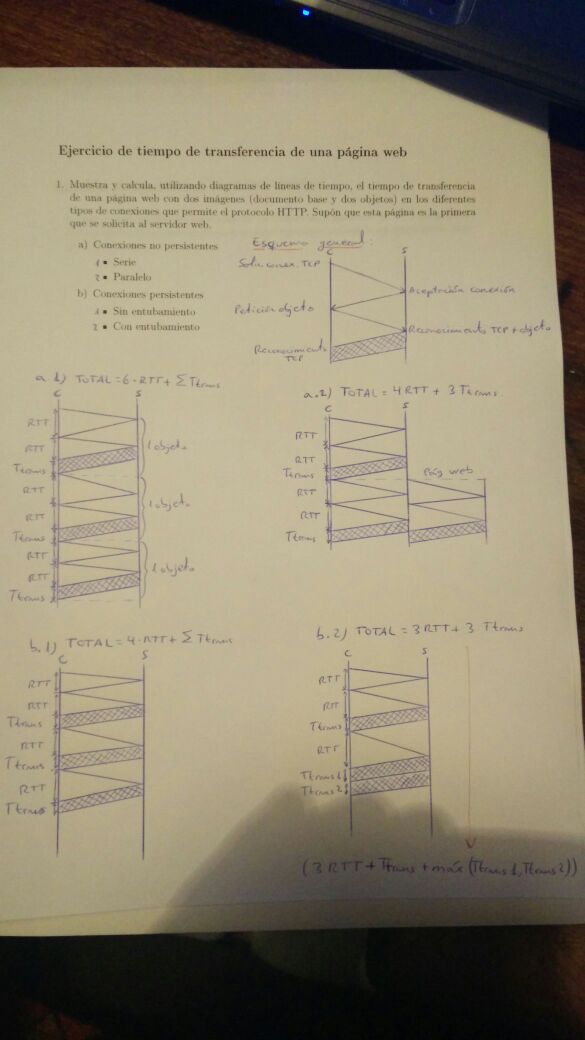 Ejercicio de tiempo de transferencia de una página web
1. Muestra y calcula, utilizando diagramas de líneas de tiempo, el tiempo de transferencia
de una página web con dos imágenes (documento base y dos objetos) en los diferentes
tipos de conexiones que permite el protocolo HTTP. Supón que esta página es la primera
que se solicita al servidor web.
a) Conexiones no persistentes
1 ▪ Serie
2 ▪ Paralelo
b) Conexiones persistentes
1 ▪ Sin entubamiento
2 ▪ Con entubamiento
Esquema general:
C S
Solic. conex. TCP
Aceptación conexión
Petición objeto
Reconocimiento TCP + objeto
Reconocimiento
TCP
a.1) TOTAL = 6·RTT + Σ Ttrans
C S
RTT
RTT
Ttrans
1 objeto
RTT
RTT
Ttrans
1 objeto
RTT
RTT
Ttrans
1 objeto
a.2) TOTAL = 4RTT + 3 Ttrans.
C S
RTT
RTT
Ttrans
Pág web
RTT
RTT
Ttrans
b.1) TOTAL = 4·RTT + Σ Ttrans
C S
RTT
RTT
Ttrans
RTT
Ttrans
RTT
Ttrans
b.2) TOTAL = 3RTT + 3·Ttrans
C S
RTT
RTT
Ttrans
RTT
Ttrans1
Ttrans2
(3RTT + Ttrans + máx (Ttrans1, Ttrans2))